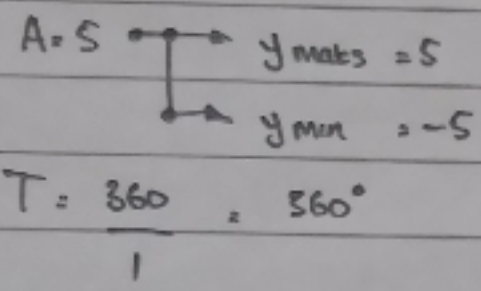 A = 5 → y maks = 5
→ y min = -5
T = 360/1 = 360°